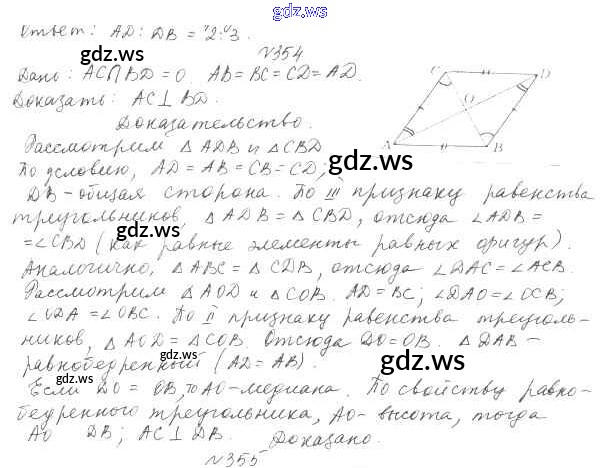 gdz.ws
Ответ: AD : DB = "2:"3
gdz.ws
N354
Дано: AC∩BD = O. AB = BC = CD = AD.
Доказать: AC ⊥ BD.
Доказательство.
C D
O
A B
Рассмотрим △ADB и △CBD
По условию, AD = AB = CB = CD;
gdz.ws
DB - общая сторона. По III признаку равенства
треугольников, △ADB = △CBD, отсюда ∠ADB =
gdz.ws
= ∠CBD (как равные элементы равных фигур).
Аналогично, △ABC = △CDB, отсюда ∠DAC = ∠ACB.
Рассмотрим △AOD и △COB. AD = BC; ∠DAO = ∠OCB;
∠ODA = ∠OBC. По II признаку равенства треуголь-
ников, △AOD = △COB. Отсюда DO = OB. △DAB -
gdz.ws
равнобедренный (AD = AB).
gdz.ws
Если DO = OB, то AO - медиана. По свойству равно-
бедренного треугольника, AO - высота, тогда
AO DB; AC ⊥ DB. Доказано.
gdz.ws
N355
gdz.ws